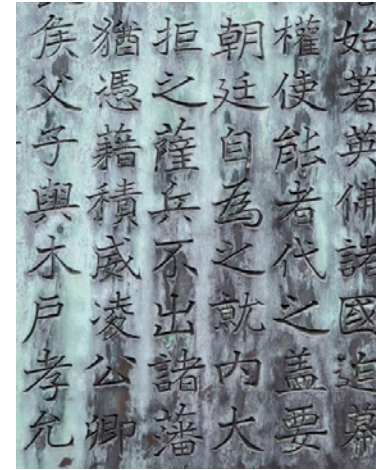 始著英佛諸國迫幕
權使能者代之盖要
朝廷自為之就内大
拒之薩兵不出諸藩
猶憑藉積威凌公卿
矦父子與木戶孝允